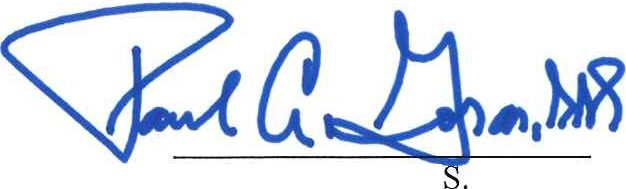 Paul A. Gosar, DDS
S.